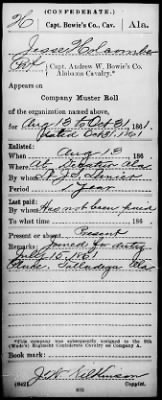 (CONFEDERATE.)
H Capt. Bowie's Co., Cav. Ala.
Jesse Holcombe
Capt. Andrew W. Bowie's Co.
Alabama Cavalry.*
Appears on
Company Muster Roll
of the organization named above,
for Aug 13 to Oct 31, 1861.
Dated Oct 31, 1861
Enlisted:
When Aug 13, 186 .
Where At Ala
By whom
Period 1 Year
Last paid:
By whom Has not been paid
To what time , 186 .
Present or absent Present
Remarks: Joined for duty
July 15, 1861
Talladega Ala
*This company was subsequently assigned to the 8th
(Wade's) Regiment Confederate Cavalry as Company A.
Book mark:
(642) Copyist.